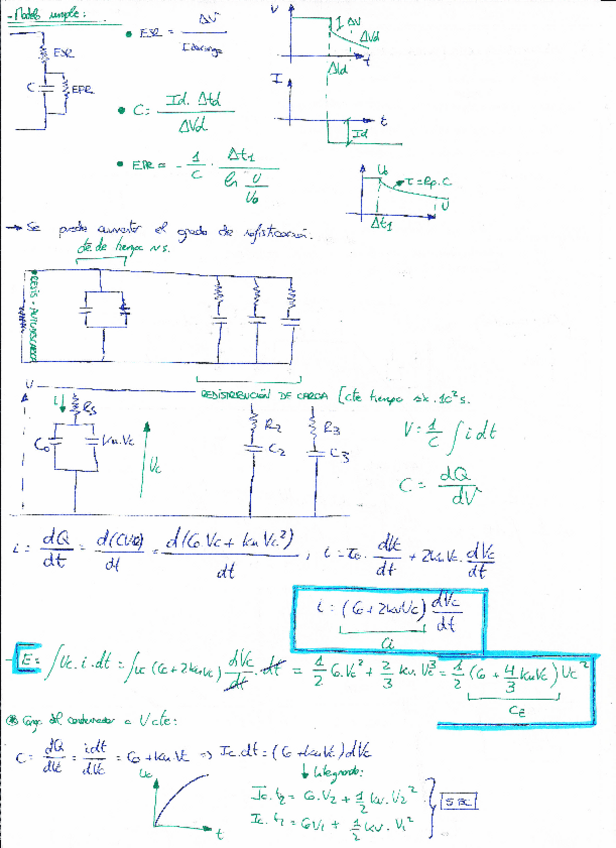 - Modelo simple:
ESR
C
EPR
• ESR = ΔV / Idescarga
• C = Id · Δtd / ΔVd
• EPR = - 1/C · Δt1 / ln U/U0
V
ΔV
ΔVd
t
Δtd
I
t
Id
U0
τ = Rp.C
U
Δt1
→ Se puede aumentar el grado de sofisticación.
cte de tiempo ns.
REDISTRIBUCIÓN DE CARGA [cte tiempo
U
i
Rs
C0
Ku.Vc
Uc
R2
C2
R3
C3
V = 1/C ∫ i dt
C = dQ/dV
i = dQ/dt = d(CVc)/dt = d(C0 Vc + Ku Vc²)/dt , i = C0 · dVc/dt + 2KuVc · dVc/dt
i = (C0 + 2KuVc) dVc/dt
Ci
E = ∫ Uc · i · dt = ∫ Uc (C0 + 2KuVc) dVc/dt · dt = 1/2 C0.Vc² + 2/3 Ku.Vc³ = 1/2 (C0 + 4/3 KuVc) Uc²
CE
Carga del condensador a Ucte:
C = dQ/dVc = idt/dVc = C0 + Ku Vc ⇒ Ic.dt = (C0 + KuVc) dVc
Uc
t
↓ Integrando:
Ic. t2 = C0.V2 + 1/2 Ku.V2²
Ic. t1 = C0V1 + 1/2 Ku. V1²